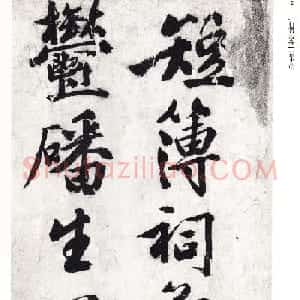 短簿祠
鬱磻生
Shufaziliao.com